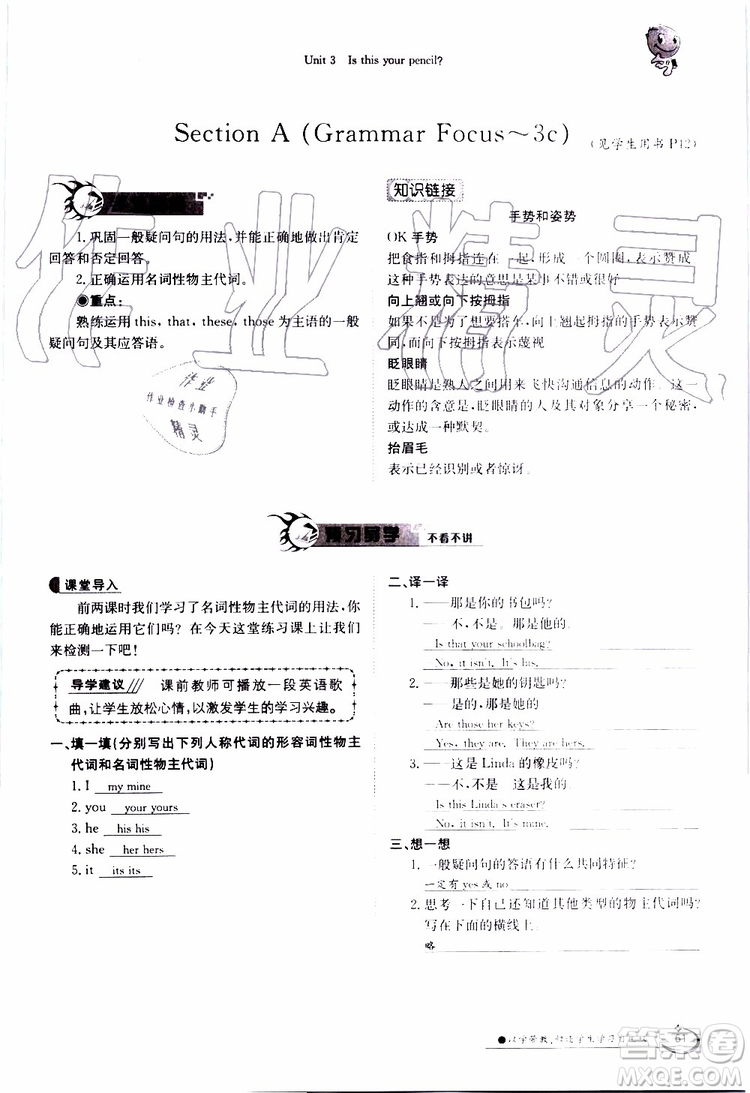 Unit 3 Is this your pencil?
Section A (Grammar Focus～3c)
(见学生用书 P12)
1.巩固一般疑问句的用法，并能正确地做出肯定
回答和否定回答。
2.正确运用名词性物主代词。
●重点：
熟练运用 this, that, these, those 为主语的一般
疑问句及其应答语。
知识链接
手势和姿势
OK 手势
把食指和拇指连在一起，形成一个圆圈，表示赞成
这种手势表达的意思是某事不错或很好
向上翘或向下按拇指
如果不是了想要搭车，向上翘起拇指的手势表示赞
同，而向下按拇指表示蔑视
眨眼睛
眨眼睛是熟人之间用来飞快沟通信息的方式。这一
动作的含意是，眨眼睛的人及其对象分享一个秘密，
或达成一种默契。
抬眉毛
表示已经识别或者惊讶。
预习导学 不看不讲
课堂导入
前两课时我们学习了名词性物主代词的用法，你
能正确地运用它们吗？在今天这堂练习课上让我们
来检测一下吧！
导学建议 课前教师可播放一段英语歌
曲，让学生放松心情，以激发学生的学习兴趣。
一、填一填(分别写出下列人称代词的形容词性物主
代词和名词性物主代词)
1. I my mine
2. you your yours
3. he his his
4. she her hers
5. it its its
二、译一译
1. ——那是你的书包吗？
——不，不是。那是他的。
Is that your schoolbag?
No, it isn't. It's his.
2. ——那些是她的钥匙吗？
——是的，那是她的
Are those her keys?
Yes, they are. They are hers.
3. ——这是 Linda 的橡皮吗？
——不，不是 这是我的。
Is this Linda's eraser?
No, it isn't. It's mine.
三、想一想
1. 一般疑问句的答语有什么共同特征？
一定有 yes 或 no
2. 思考一下自己还知道其他类型的物主代词吗？
写在下面的横线上。
略
61
作业精灵
作业
作业检查小助手
精灵
作业答案
MXQE.COM